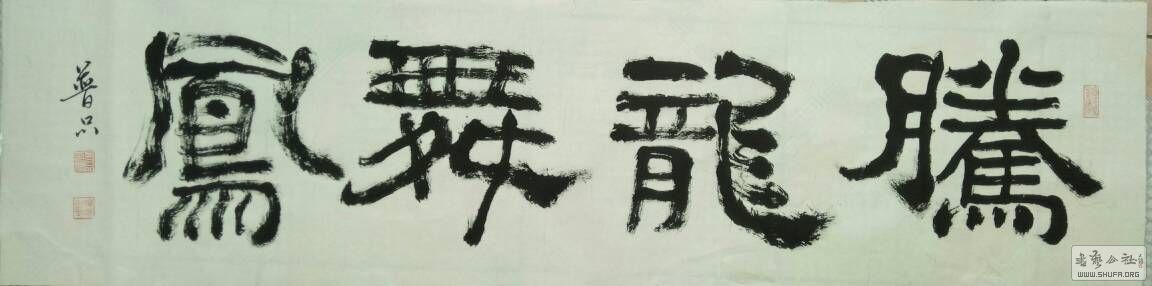 騰龍舞鳳
普只
書法公社
WWW.SHUFA.ORG